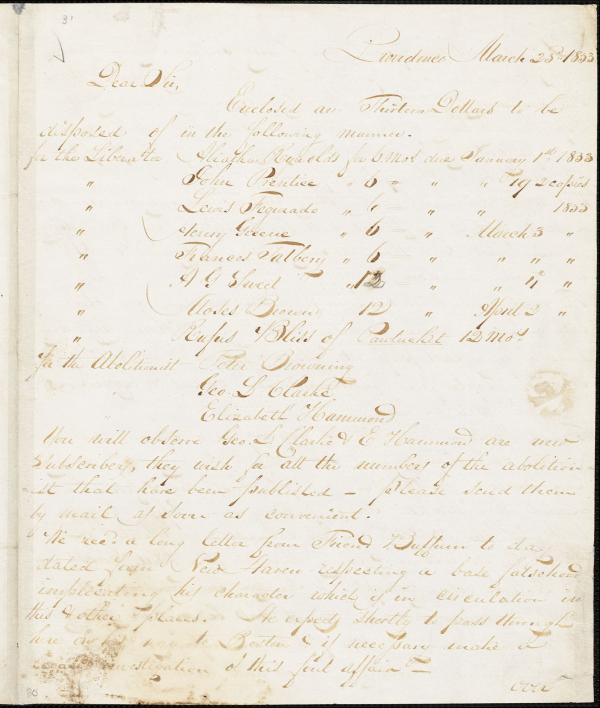 Providence March 25th 1833
Dear Sir,
Enclosed are Thirteen Dollars to be
disposed of in the following manner.
for the Liberator Reynolds for 6 Mos due January 1st 1833
" John Prentice " 6 " " " 19 2 copies
" Lewis " 6 " " " 1833
" Henry Greene " 6 " March 3 "
" Frances Talbery " 6 " " " "
" A G Sweet " 12 " " 4 "
" Moses Browning 12 " April 2 "
" Rufus Bliss of Pawtucket 12 Mos.
for the Abolitionist Peter Browning
Geo. L Clarke
Elizabeth Hammond
You will observe Geo. L Clarke & E Hammond are new
subscribers, they wish for all the numbers of the abolition-
ist that have been published - please send them
by mail as soon as convenient.
We recd a long letter from Friend Buffum to day
dated from New Haven respecting a base falsehood
implicating his character which is in circulation in
this & other places. He expects shortly to pass through
here on his way to Boston & if necessary make a
investigation of this foul affair -
over